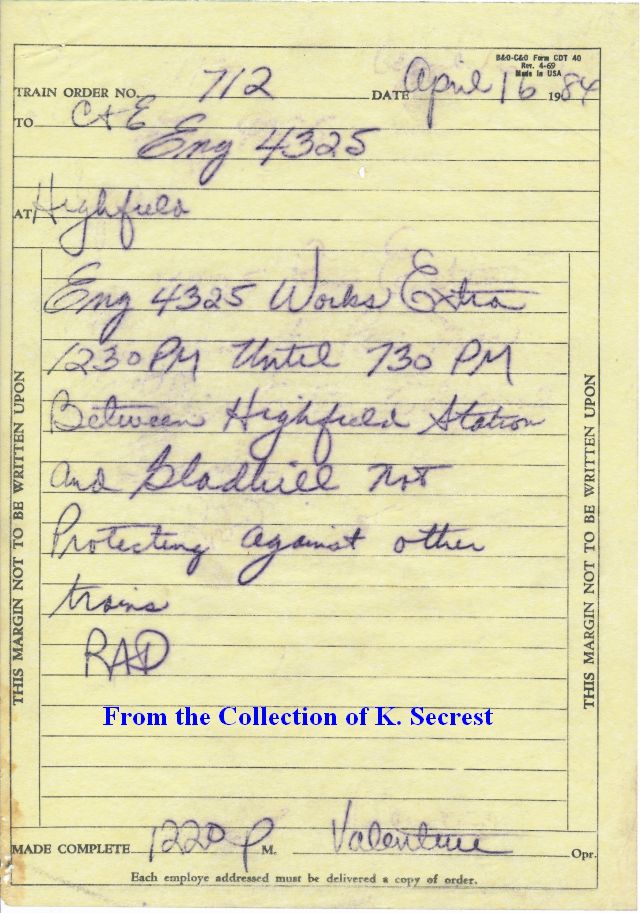 B&O-C&O Form CDT 40
Rev. 4-69
Made in USA
TRAIN ORDER NO. 712 DATE April 16 1984
TO C&E
Eng 4325
AT Highfield
Eng 4325 Works Extra
1230 PM Until 730 PM
Between Highfield Station
and Gladhill Not
Protecting against other
trains
RAD
From the Collection of K. Secrest
MADE COMPLETE 1220 P M. Valentine Opr.
Each employe addressed must be delivered a copy of order.
THIS MARGIN NOT TO BE WRITTEN UPON
THIS MARGIN NOT TO BE WRITTEN UPON